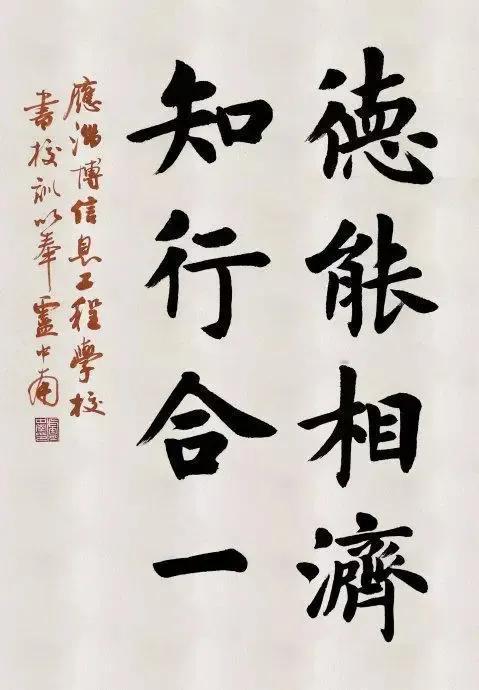 德能相濟
知行合一
應淄博信息工程學校
書校訓以奉 盧中南